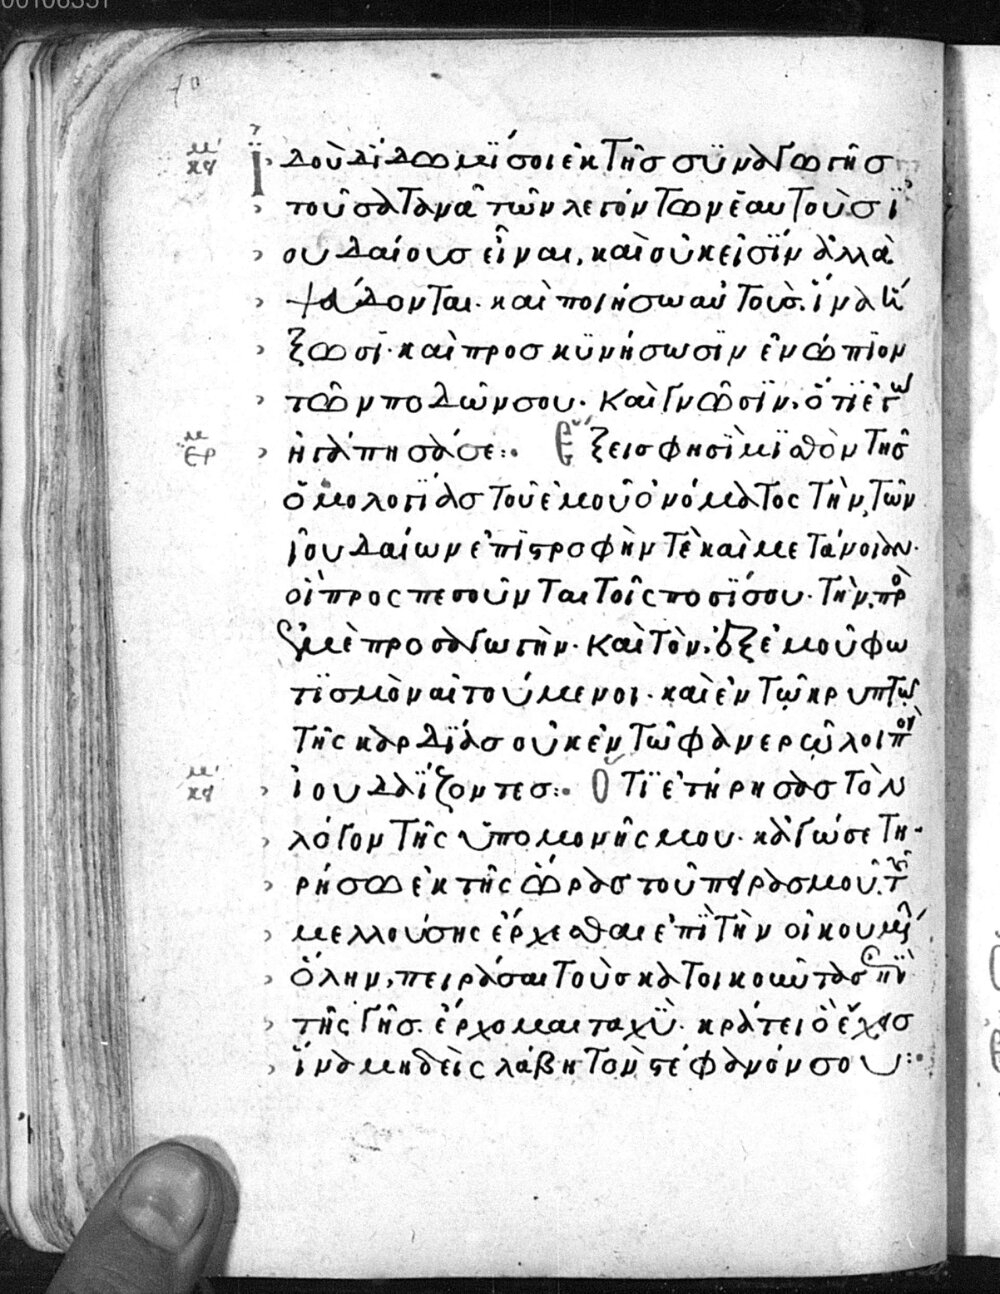 ἰδοὺ δίδωμί σοι ἐκ τῆς συναγωγῆς
τοῦ σατανᾶ τῶν λεγόντων ἑαυτοὺς ἰ
ουδαίους εἶναι, καὶ οὐκ εἰσὶν ἀλλὰ
ψεύδονται· καὶ ποιήσω αὐτοὺς. ἵνα ἥ
ξωσι· καὶ προσκυνήσωσιν ἐνώπιον
τῶν ποδῶν σου· καὶ γνῶσιν· ὅτι ἐγὼ
ἠγάπησά σε:· Ἕξεις φησὶ μισθὸν τῆς
ὁμολογίας τοῦ ἐμοῦ ὀνόματος τὴν τῶν
ἰουδαίων ἐπιστροφὴν τὲ καὶ μετάνοιαν·
οἳ προσπεσοῦνται τοῖς ποσί σου· τὴν πρ
ὸς ἐμὲ προσαγωγὴν· καὶ τὸν ἐξ ἐμοῦ φω
τισμὸν αἰτούμενοι· καὶ ἐν τῷ κρυπτῷ
τῆς καρδίας οὐκ ἐν τῷ φανερῷ λοιπὸν
ἰουδαΐζοντες:· Ὅτι ἐτήρησας τὸν
λόγον τῆς ὑπομονῆς μου· κἀγώ σε τη
ρήσω ἐκ τῆς ὥρας τοῦ πειρασμοῦ. τῆς
μελλούσης ἔρχεσθαι ἐπὶ τὴν οἰκουμένης
ὅλην, πειράσαι τοὺς κατοικοῦντας ἐπὶ
τῆς γῆς. ἔρχομαι ταχὺ· κράτει ὃ ἔχεις
ἵνα μηδεὶς λάβῃ τὸν στέφανόν σου:·